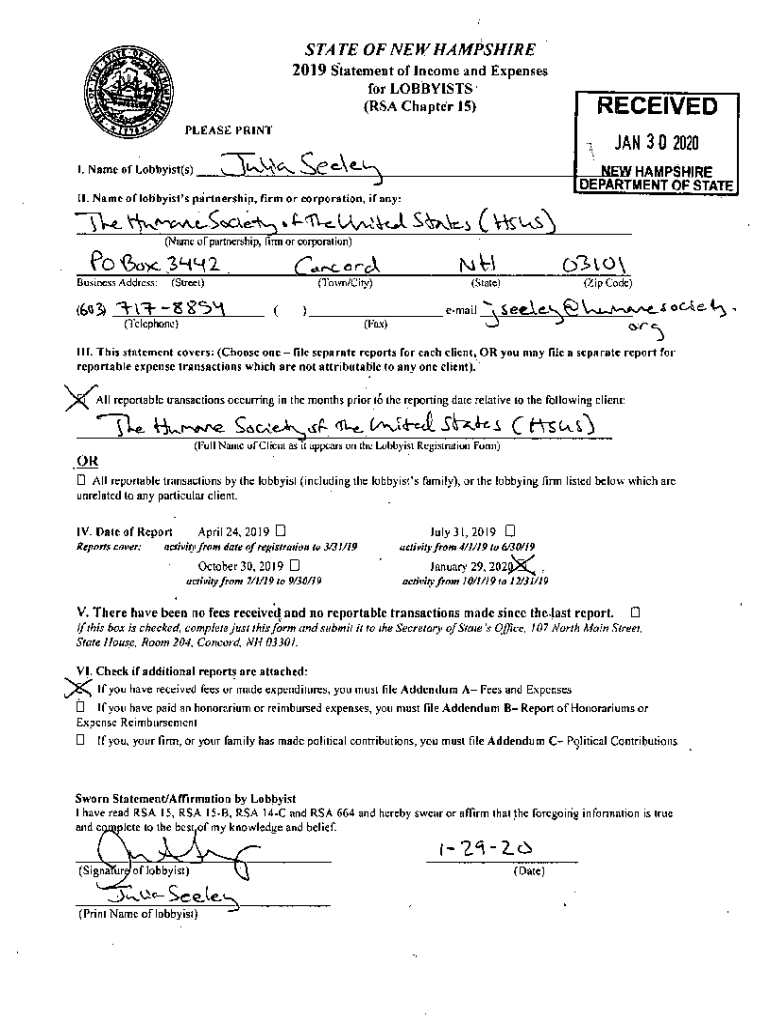 STATE OF NEW HAMPSHIRE
2019 Statement of Income and Expenses
for LOBBYISTS
(RSA Chapter 15)
RECEIVED
JAN 30 2020
NEW HAMPSHIRE
DEPARTMENT OF STATE
PLEASE PRINT
I. Name of Lobbyist(s) Julia Seeley
II. Name of lobbyist's partnership, firm or corporation, if any:
The Humane Society of The United States (HSUS)
(Name of partnership, firm or corporation)
PO Box 3442 Concord NH 03101
Business Address: (Street) (Town/City) (State) (Zip Code)
(603) 717-8854 ( ) e-mail jseeley@humanesociety.
org
(Telephone) (Fax)
III. This statement covers: (Choose one – file separate reports for each client, OR you may file a separate report for
reportable expense transactions which are not attributable to any one client).
All reportable transactions occurring in the months prior to the reporting date relative to the following client:
The Humane Society of The United States (HSUS)
(Full Name of Client as it appears on the Lobbyist Registration Form)
OR
☐ All reportable transactions by the lobbyist (including the lobbyist's family), or the lobbying firm listed below which are
unrelated to any particular client.
IV. Date of Report April 24, 2019 ☐ July 31, 2019 ☐
Reports cover: activity from date of registration to 3/31/19 activity from 4/1/19 to 6/30/19
October 30, 2019 ☐ January 29, 2020 ☒
activity from 7/1/19 to 9/30/19 activity from 10/1/19 to 12/31/19
V. There have been no fees received and no reportable transactions made since the last report. ☐
If this box is checked, complete just this form and submit it to the Secretary of State's Office, 107 North Main Street,
State House, Room 204, Concord, NH 03301.
VI. Check if additional reports are attached:
☒ If you have received fees or made expenditures, you must file Addendum A– Fees and Expenses
☐ If you have paid an honorarium or reimbursed expenses, you must file Addendum B– Report of Honorariums or
Expense Reimbursement
☐ If you, your firm, or your family has made political contributions, you must file Addendum C– Political Contributions
Sworn Statement/Affirmation by Lobbyist
I have read RSA 15, RSA 15-B, RSA 14-C and RSA 664 and hereby swear or affirm that the foregoing information is true
and complete to the best of my knowledge and belief.
1-29-20
(Signature of lobbyist) (Date)
Julia Seeley
(Print Name of lobbyist)